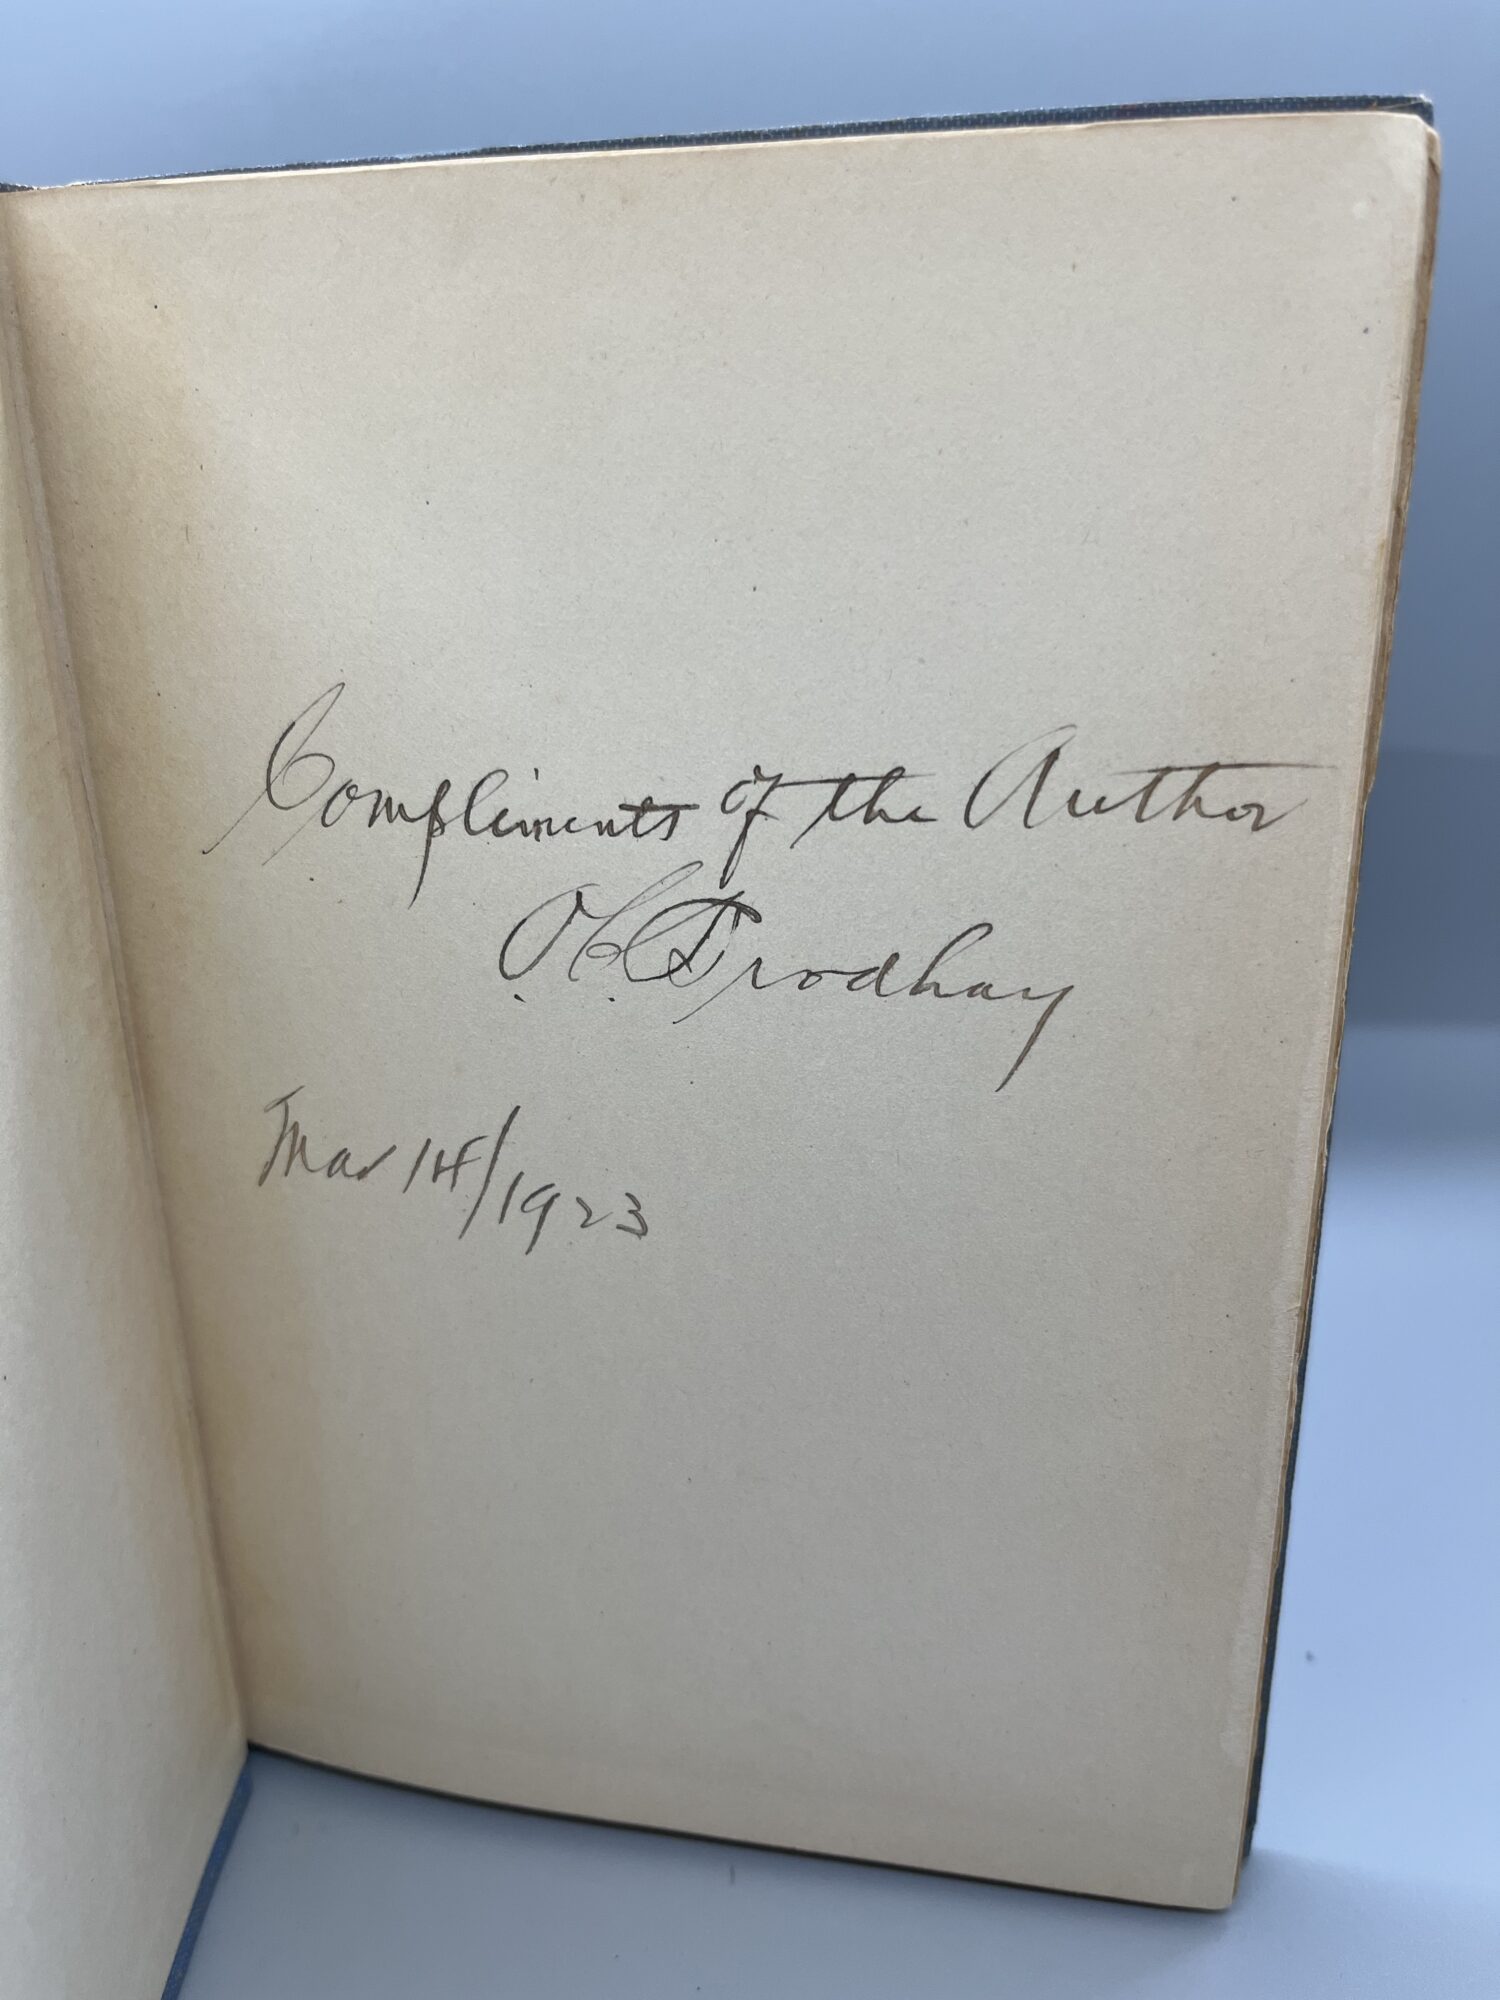 Compliments of the Author
O. C. Prodhay
Mar 14/1923